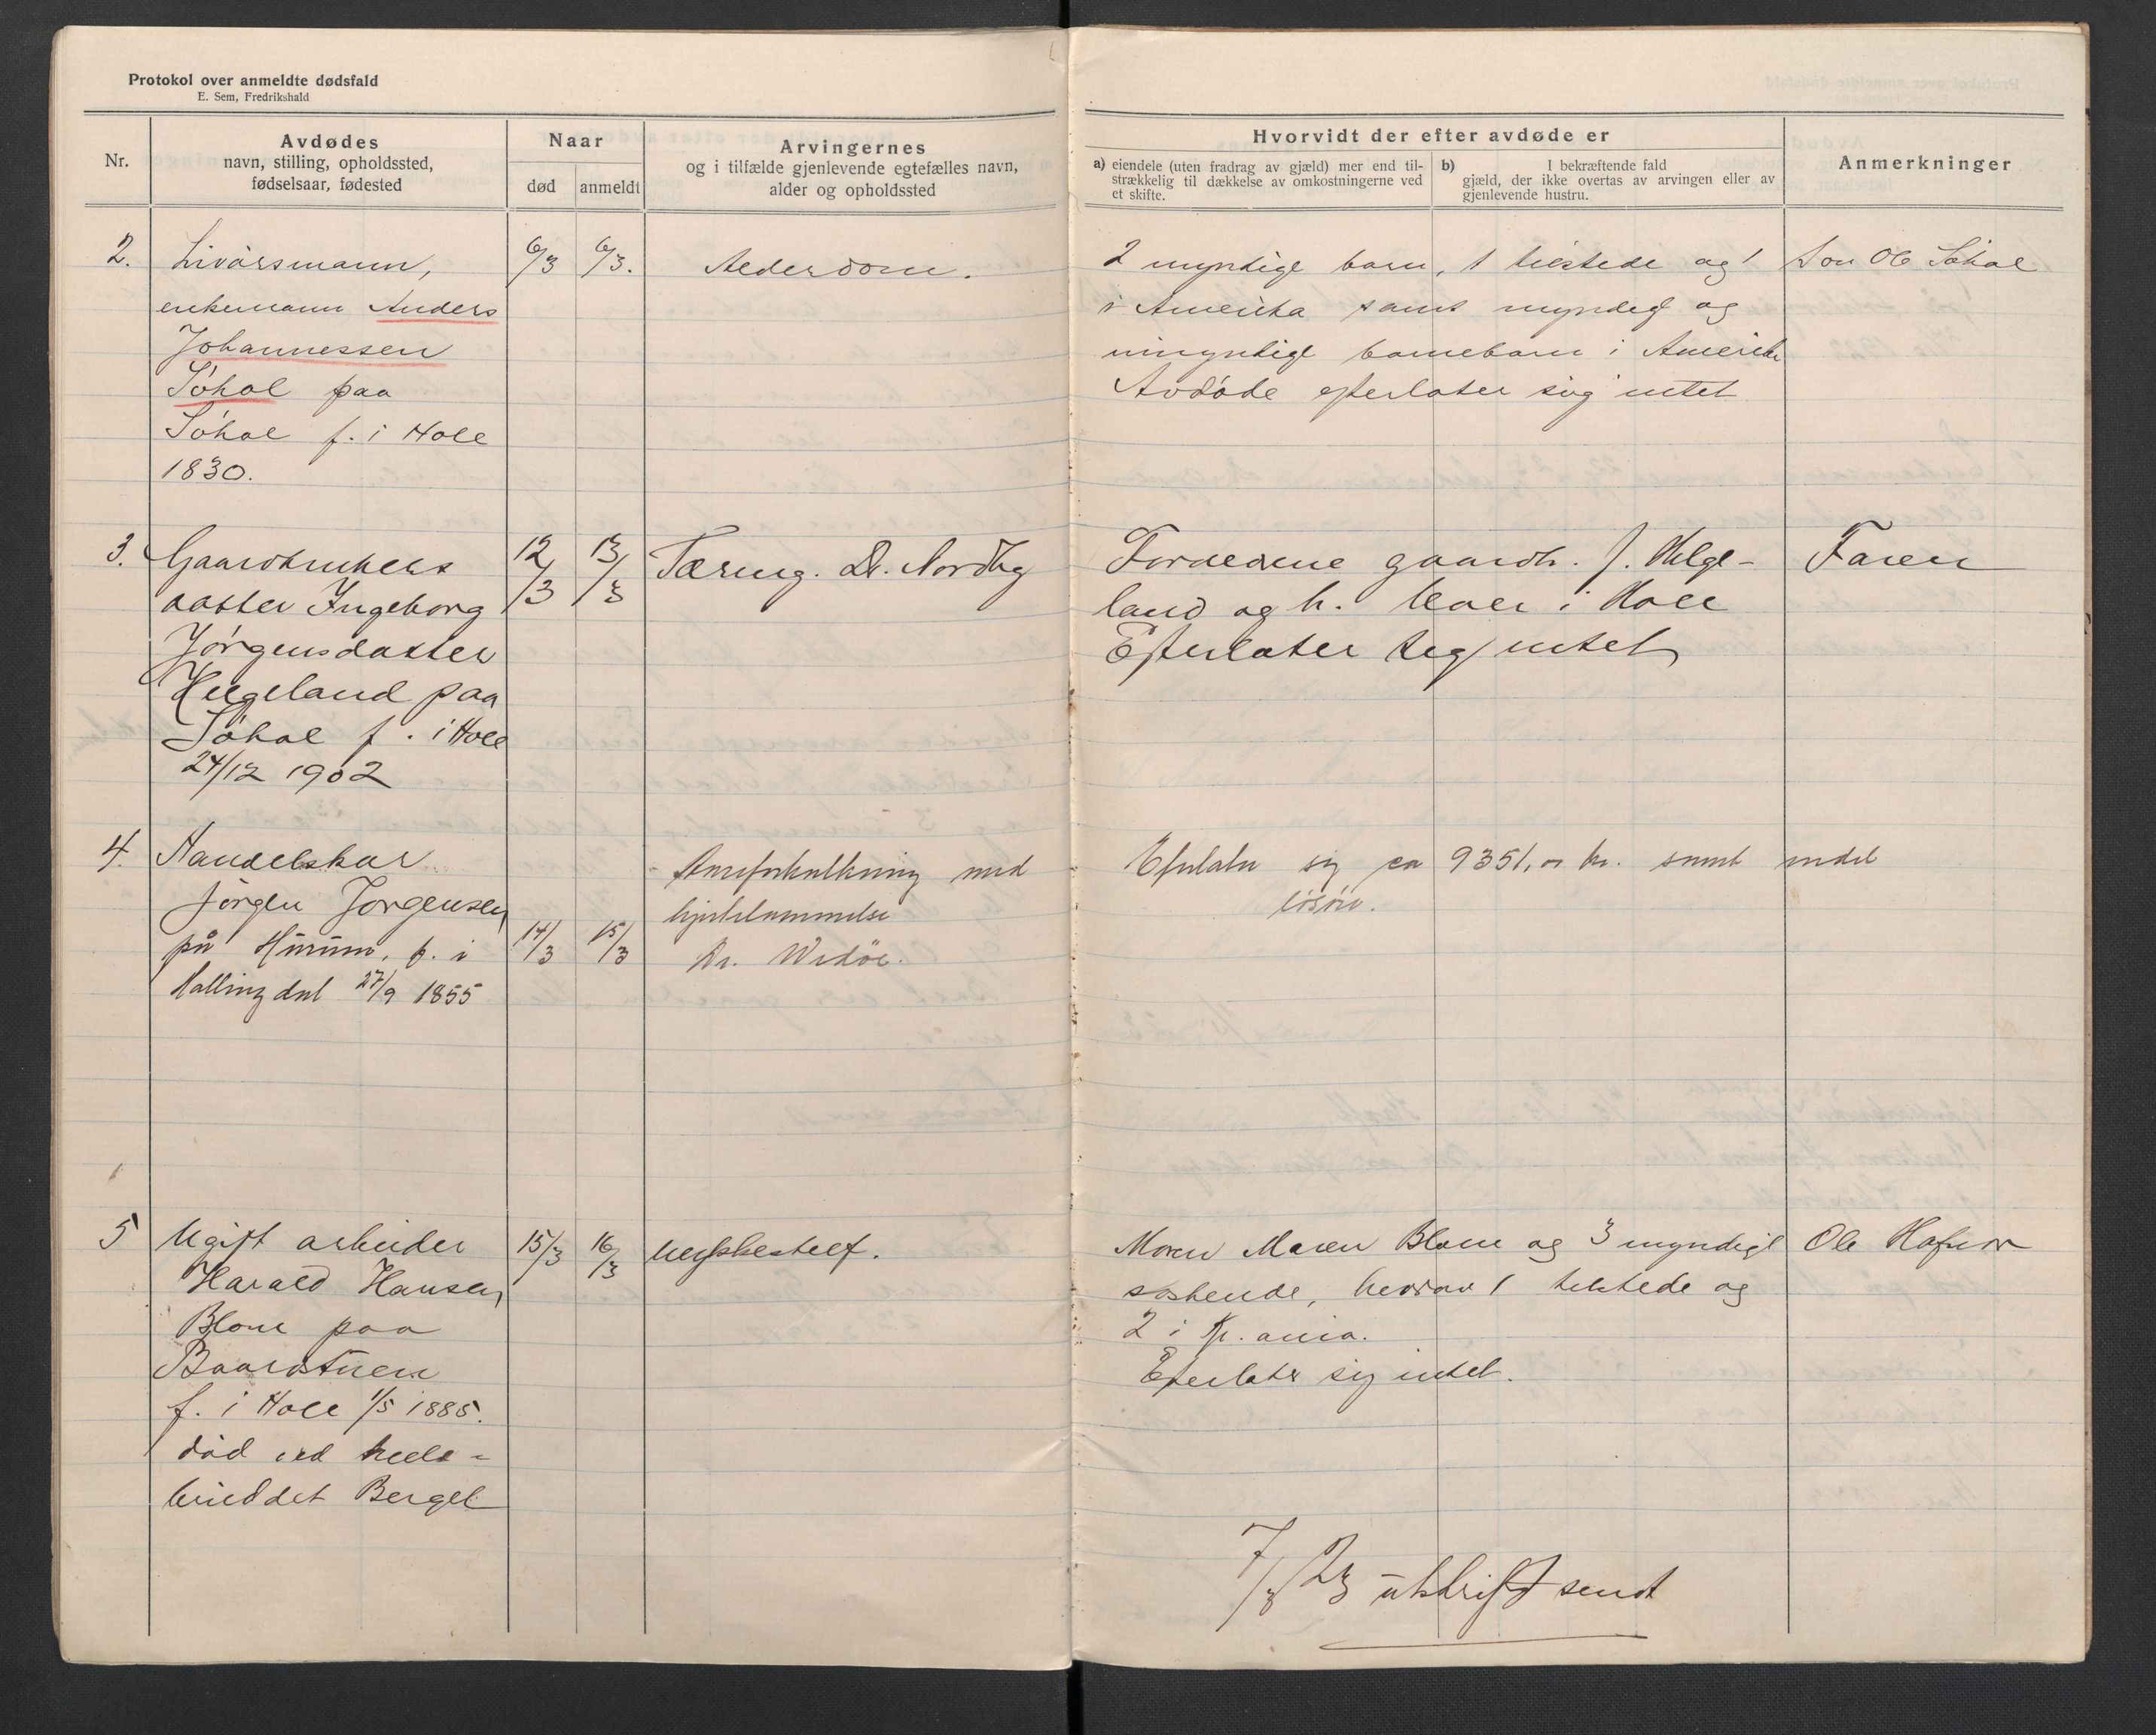 Protokol over anmeldte dødsfald
E. Sem, Fredrikshald
Nr.
Avdødes
navn, stilling, opholdssted,
fødselsaar, fødested
Naar
død
anmeldt
Arvingernes
og i tilfælde gjenlevende egtefælles navn,
alder og opholdssted
Hvorvidt der efter avdøde er
a) eiendele (uten fradrag av gjæld) mer end til-
strækkelig til dækkelse av omkostningerne ved
et skifte.
b) I bekræftende fald
gjæld, der ikke overtas av arvingen eller av
gjenlevende hustru.
Anmerkninger
2.
Livørsmann,
enkemann Anders
Johannessen
Søhol paa
Søhol f. i Hole
1830.
6/3
6/3.
Alderdom.
2 myndige barn, 1 tilstede og 1
i Amerika samt myndig og
umyndige barnebarn i Amerika
Avdøde efterlater sig intet
Søn Ole Søhol
3.
Gaardbrukers
datter Ingeborg
Jørgensdatter
Helgeland paa
Søhol f. i Hole
24/12 1902
12/3
13/3
Tæring. Dr. Nordby
Forældrene gaardb. J. Helge-
land og h. lever i Hole
Efterlater seg intet
Faren
4.
Handelskar
Jörgen Jörgensen
på Hurum, f. i
Hallingdal 27/9 1855
14/3
15/3
Areforkalkning med
hjertelammelse
Dr. Wedøe.
Efterlater sig ca 9351,00 kr. samt endel
løsöre.
5
Ugift arbeider
Harald Hansen
Blom paa
Baardstuen
f. i Hole 1/5 1885.
død ved
Berget
15/3
16/3
Ulykkestilf.
Moren Maren Blom og 3 myndige
søskende, hvorav 1 tilstede og
2 i Kr.ania.
Efterlater sig intet.
Ole Hafnor
7/3 23 utskrift sendt